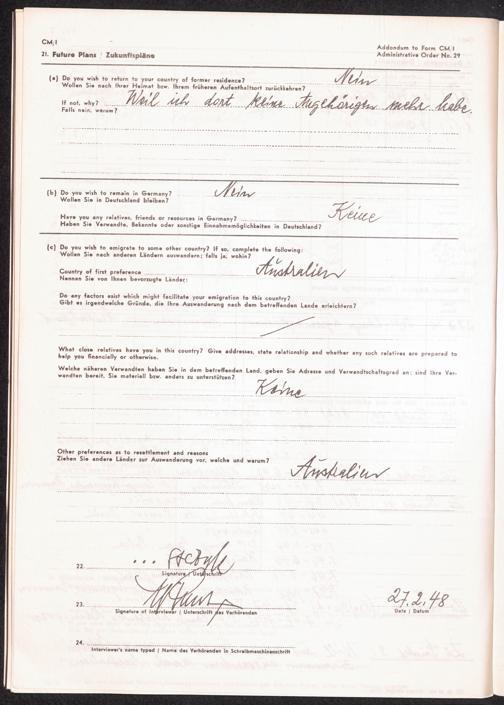 CM/1
21. Future Plans / Zukunftspläne
Addendum to Form CM/1
Administrative Order No. 29
(a) Do you wish to return to your country of former residence? Nein
Wollen Sie nach Ihrer Heimat bzw. Ihrem früheren Aufenthaltsort zurückkehren?
If not, why? Weil ich dort keine Angehörigen mehr habe.
Falls nein, warum?
(b) Do you wish to remain in Germany? Nein
Wollen Sie in Deutschland bleiben?
Have you any relatives, friends or resources in Germany? Keine
Haben Sie Verwandte, Bekannte oder sonstige Einnahmsmöglichkeiten in Deutschland?
(c) Do you wish to emigrate to some other country? If so, complete the following:
Wollen Sie nach anderen Ländern auswandern; falls ja, wohin?
Country of first preference Australien
Nennen Sie von Ihnen bevorzugte Länder:
Do any factors exist which might facilitate your emigration to this country?
Gibt es irgendwelche Gründe, die Ihre Auswanderung nach dem betreffenden Lande erleichtern?
What close relatives have you in this country? Give addresses, state relationship and whether any such relatives are prepared to
help you financially or otherwise.
Welche näheren Verwandten haben Sie in dem betreffenden Land, geben Sie Adresse und Verwandtschaftsgrad an; sind Ihre Ver-
wandten bereit, Sie materiell bzw. anders zu unterstützen?
Keine
Other preferences as to resettlement and reasons
Ziehen Sie andere Länder zur Auswanderung vor, welche und warum?
Australien
22.
Signature / Unterschrift
23. 27.2.48
Signature of Interviewer / Unterschrift des Verhörenden Date / Datum
24.
Interviewer's name typed / Name des Verhörenden in Schreibmaschinenschrift